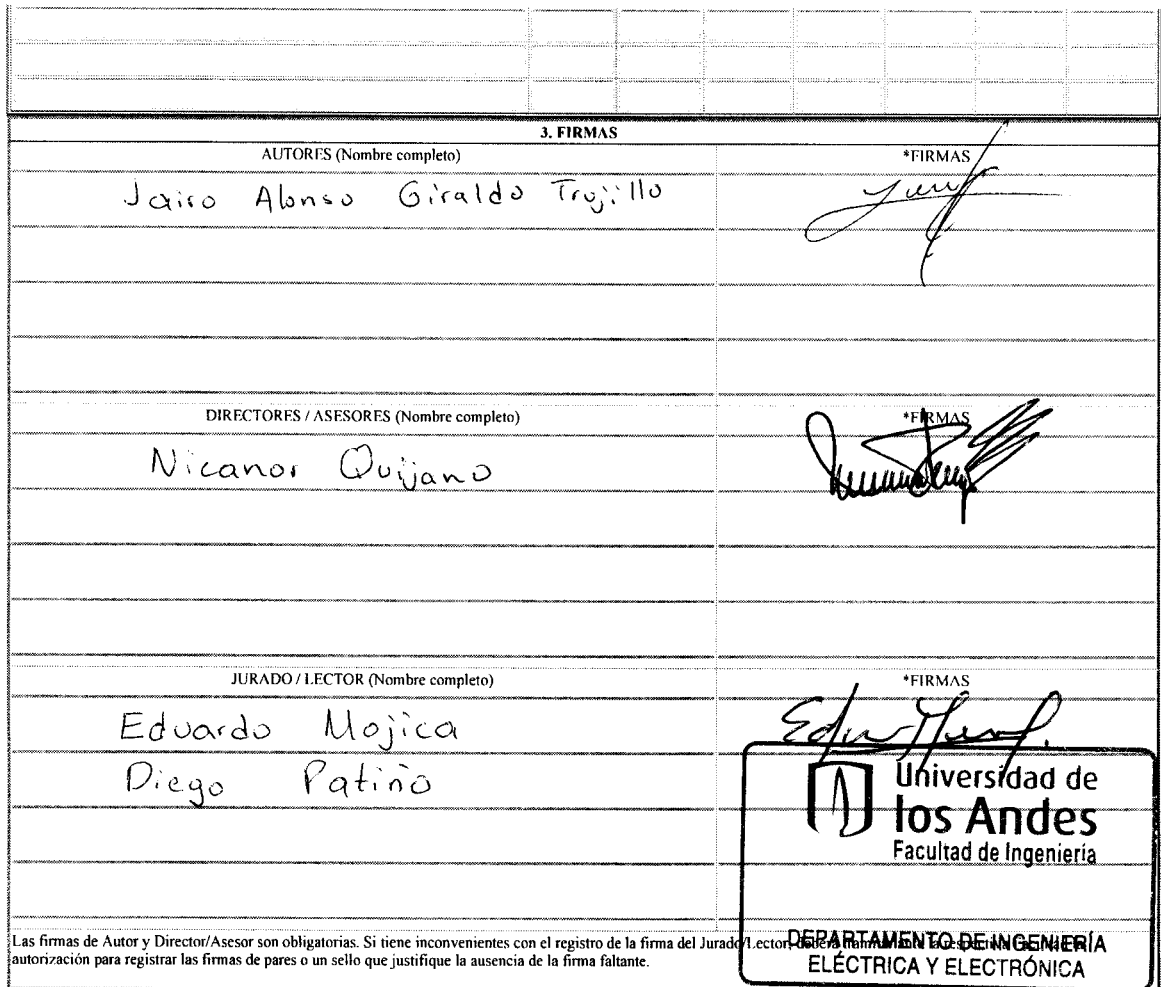 3. FIRMAS
AUTORES (Nombre completo) *FIRMAS
Jairo Alonso Giraldo Trujillo
DIRECTORES / ASESORES (Nombre completo) *FIRMAS
Nicanor Quijano
JURADO / LECTOR (Nombre completo) *FIRMAS
Eduardo Mojica
Diego Patiño
Universidad de
los Andes
Facultad de Ingeniería
Las firmas de Autor y Director/Asesor son obligatorias. Si tiene inconvenientes con el registro de la firma del Jurado/Lector, deberá
autorización para registrar las firmas de pares o un sello que justifique la ausencia de la firma faltante.
DEPARTAMENTO DE INGENIERÍA
ELÉCTRICA Y ELECTRÓNICA